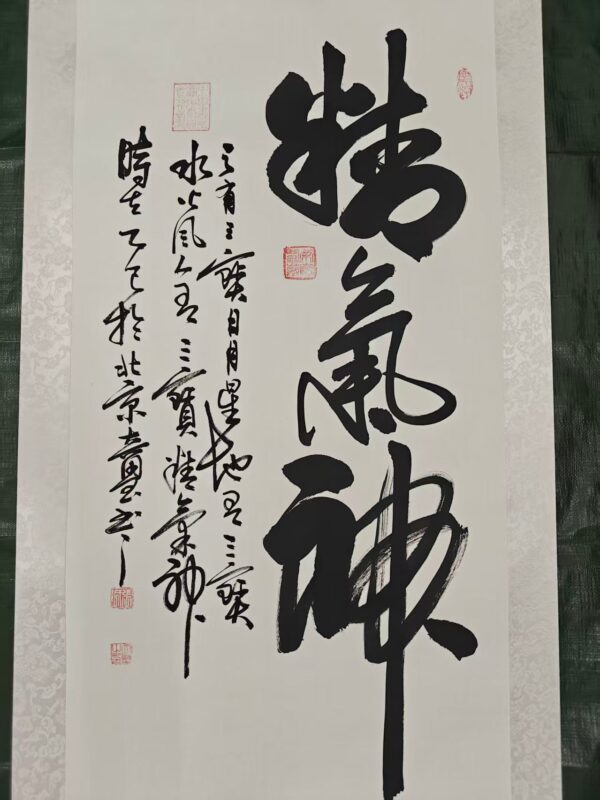 精氣神
天有三寶日月星地有三寶
水火風人有三寶精氣神
時在乙巳於北京書